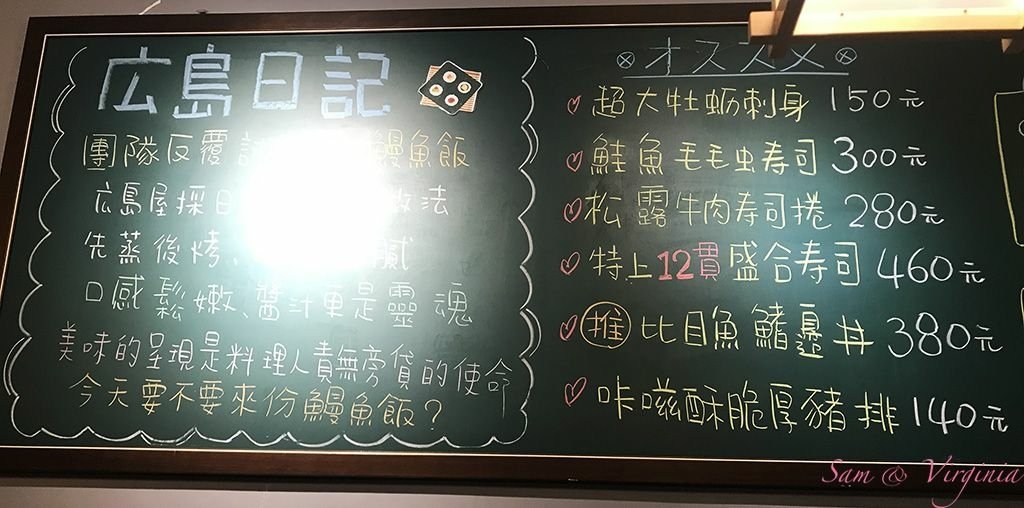 広島日記
團隊反覆 鰻魚飯
広島屋採日 做法
先蒸後烤、 膩
口感鬆嫩、醬汁更是靈魂
美味的呈現是料理人責無旁貸的使命
今天要不要來份鰻魚飯?
オススメ
超大牡蛎刺身 150元
鮭魚毛毛虫寿司 300元
松露牛肉寿司捲 280元
特上12貫盛合寿司 460元
推 比目魚鰭邊丼 380元
咔嗞酥脆厚豬排 140元
Sam & Virginia